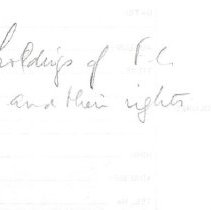 holdings of P.C.
and their rights